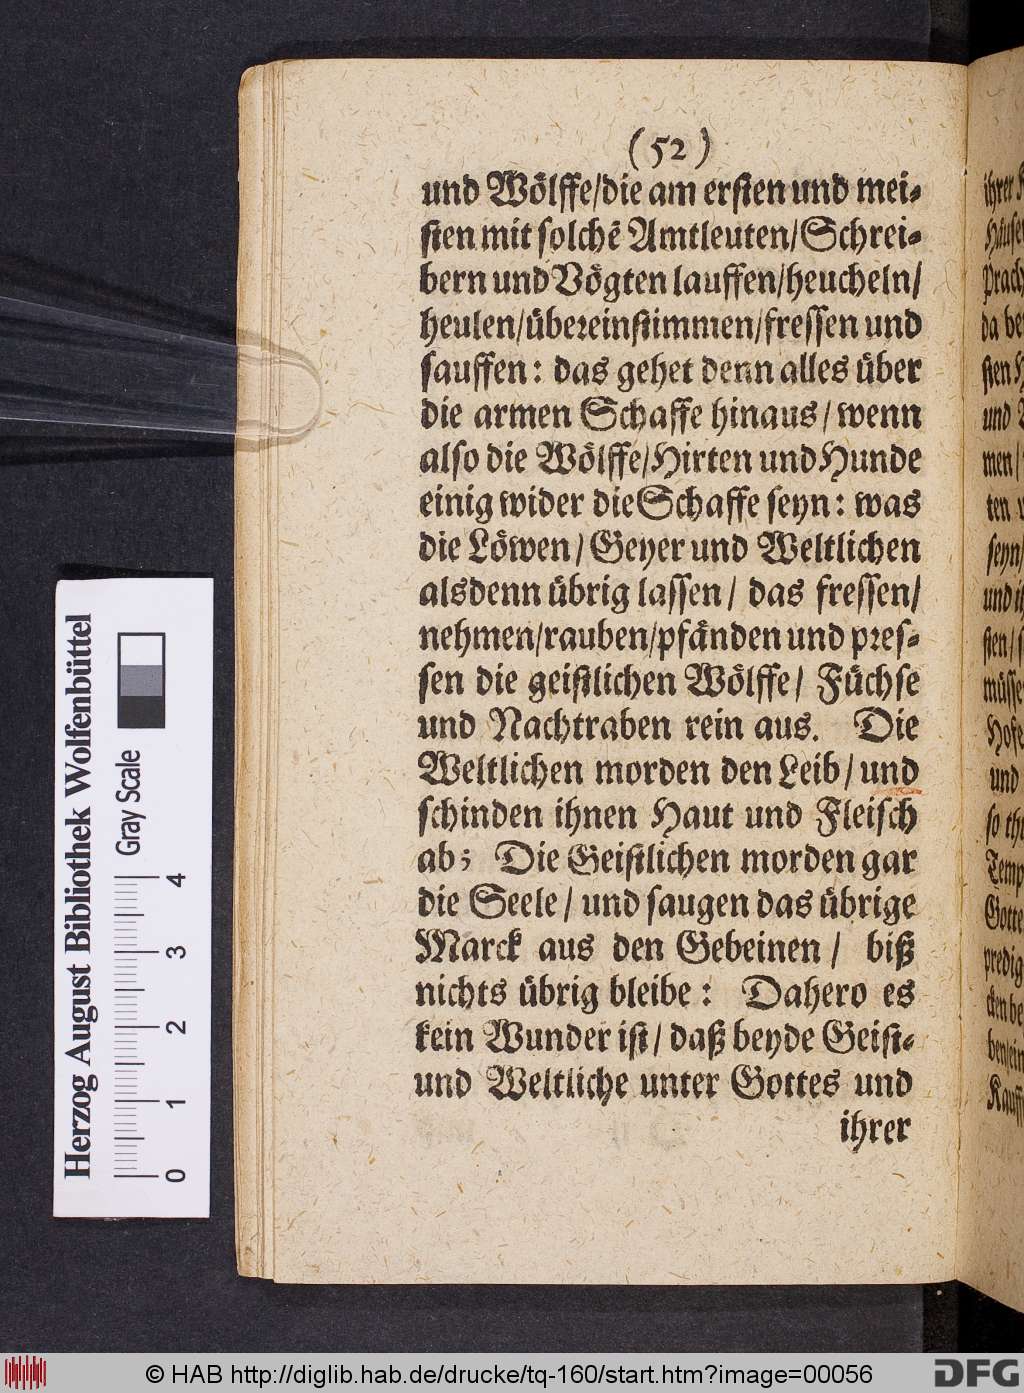 (52)
und Wölffe/die am ersten und mei-
sten mit solchẽ Amtleuten/Schrei-
bern und Vögten lauffen/heucheln/
heulen/übereinstimmen/fressen und
sauffen: das gehet denn alles über
die armen Schaffe hinaus/wenn
also die Wölffe/Hirten und Hunde
einig wider die Schaffe seyn: was
die Löwen/Geyer und Weltlichen
alsdenn übrig lassen/ das fressen/
nehmen/rauben/pfänden und pres-
sen die geistlichen Wölffe/ Füchse
und Nachtraben rein aus. Die
Weltlichen morden den Leib/und
schinden ihnen Haut und Fleisch
ab; Die Geistlichen morden gar
die Seele/ und saugen das übrige
Marck aus den Gebeinen/ biß
nichts übrig bleibe: Dahero es
kein Wunder ist/ daß beyde Geist-
und Weltliche unter Gottes und
ihrer
ihrer
da
sten
und
men/
ten
seyn/
und
sten/
Hofe
und
so
Gotte
predig
Herzog August Bibliothek Wolfenbüttel
Gray Scale
0 1 2 3 4
© HAB http://diglib.hab.de/drucke/tq-160/start.htm?image=00056
DFG